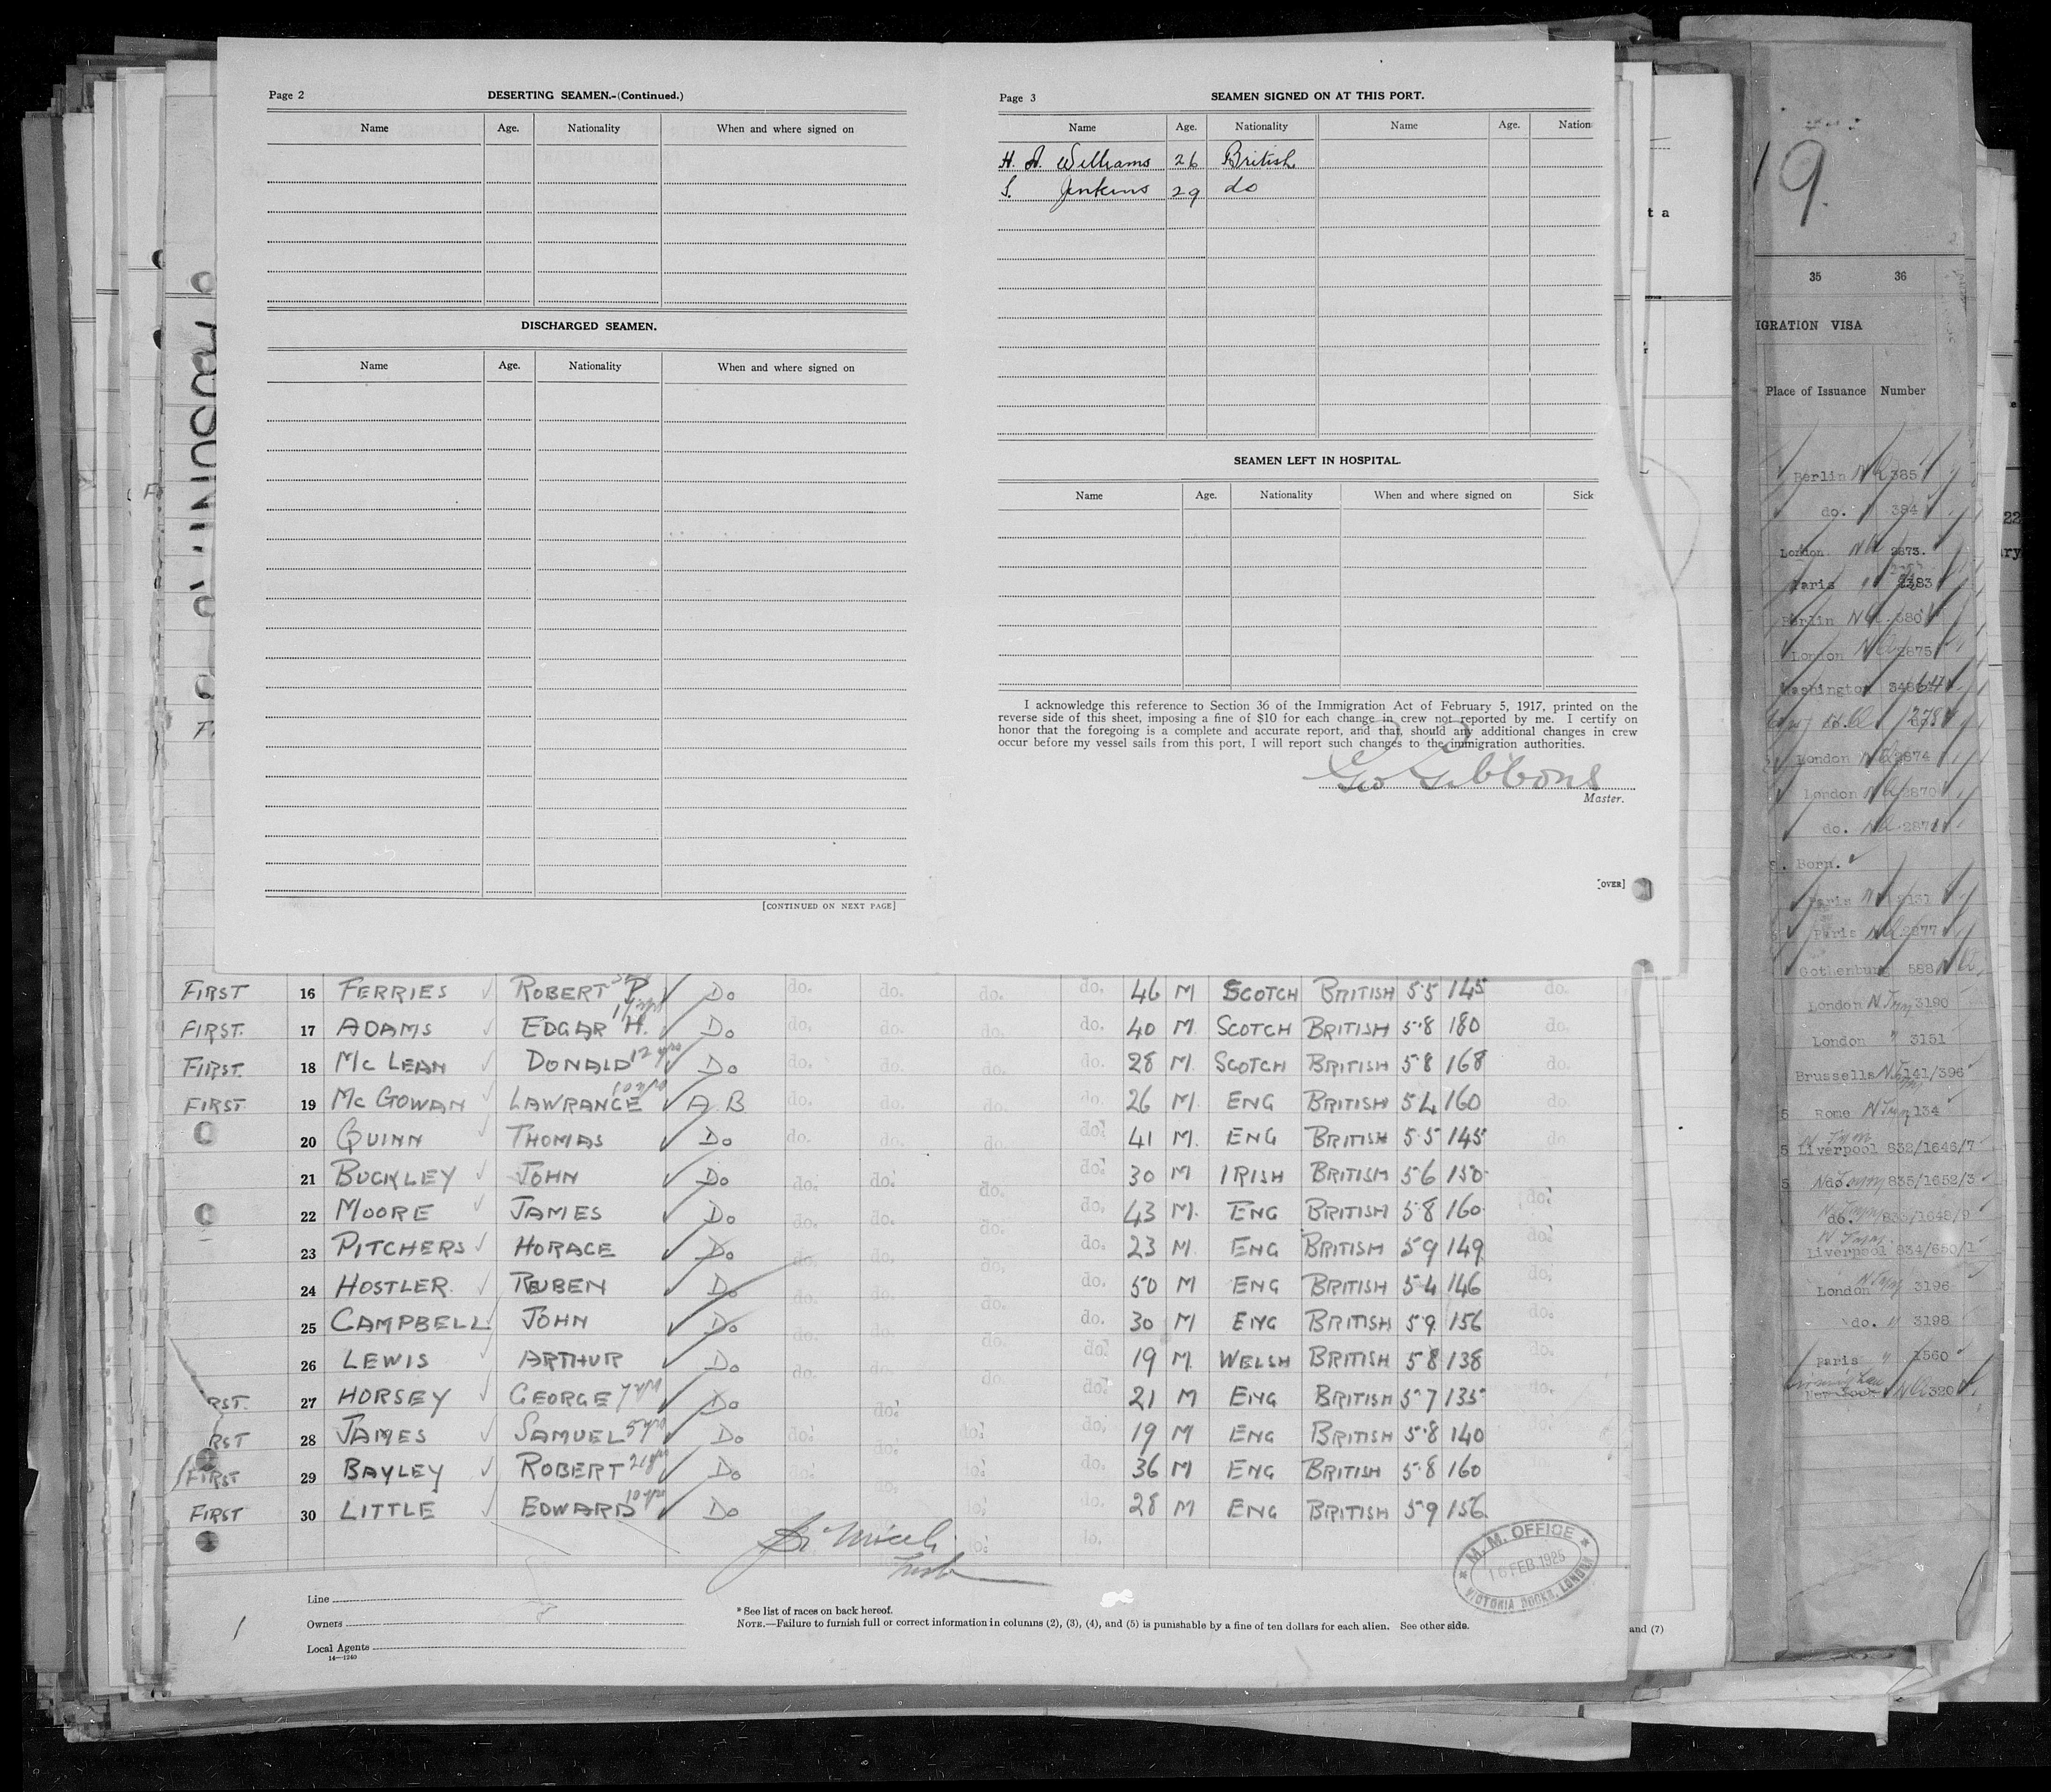 Page 2
DESERTING SEAMEN.-(Continued.)
Name Age. Nationality When and where signed on
DISCHARGED SEAMEN.
Name Age. Nationality When and where signed on
[CONTINUED ON NEXT PAGE]
Page 3
SEAMEN SIGNED ON AT THIS PORT.
Name Age. Nationality Name Age. Nation
H. A. Williams 26 British
S. Jenkins 29 do
SEAMEN LEFT IN HOSPITAL.
Name Age. Nationality When and where signed on Sick
I acknowledge this reference to Section 36 of the Immigration Act of February 5, 1917, printed on the
reverse side of this sheet, imposing a fine of $10 for each change in crew not reported by me. I certify on
honor that the foregoing is a complete and accurate report, and that, should any additional changes in crew
occur before my vessel sails from this port, I will report such changes to the immigration authorities.
Geo Gibbons
Master.
[OVER]
FIRST 16 FERRIES ROBERT P. Do do. do. do. do. 46 M SCOTCH BRITISH 5.5 145 do.
FIRST. 17 ADAMS EDGAR H. Do do. do. do. do. 40 M. SCOTCH BRITISH 5.8 180 do.
FIRST. 18 MC LEAN DONALD 12 yrs Do do. do. do. do. 28 M. SCOTCH BRITISH 5 8 168 do.
FIRST 19 MC GOWAN LAWRANCE A.B do. do. do. do. 26 M. ENG BRITISH 5 4 160 do.
20 QUINN THOMAS Do do. do. do. do. 41 M. ENG BRITISH 5.5 145 do.
21 BUCKLEY JOHN Do do. do. do. do. 30 M IRISH BRITISH 5 6 150
22 MOORE JAMES Do do. do. do. do. 43 M. ENG BRITISH 5.8 160 do.
23 PITCHERS HORACE Do do. do. do. do. 23 M. ENG BRITISH 5 9 149 do.
24 HOSTLER. REUBEN Do do. do. do. do. 50 M ENG BRITISH 5 4 146 do.
25 CAMPBELL JOHN Do do. do. do. do. 30 M ENG BRITISH 5 9 156 do.
26 LEWIS ARTHUR Do do. do. do. do. 19 M. WELSH BRITISH 5 8 138 do.
RST. 27 HORSEY GEORGE 7 yrs Do do. do. 21 M ENG BRITISH 5.7 135 do.
RST 28 JAMES SAMUEL 5 yrs Do do. do. do. do. 19 M ENG BRITISH 5.8 140
FIRST 29 BAYLEY ROBERT Do do. 36 M ENG BRITISH 5.8 160
FIRST 30 LITTLE EDWARD 10 yrs Do do. 28 M ENG BRITISH 5 9 156
M. M. OFFICE
16 FEB. 1925
VICTORIA DOCKS, LONDON
Line
Owners
Local Agents
14—1240
* See list of races on back hereof.
NOTE.—Failure to furnish full or correct information in columns (2), (3), (4), and (5) is punishable by a fine of ten dollars for each alien. See other side.
and (7)
t a
19.
35 36
IGRATION VISA
Place of Issuance Number
Berlin 385
do. 384
London 2873.
Paris 2383
Berlin 380
London 2875
Washington
do. 278
London 2874
London 2870
do. 2871
Born.
Paris
Paris 2877
Gothenburg 588
London 3190
London " 3151
Brussells 141/396
Rome 134
Liverpool 832/1646/7
do 835/1652/3
do. 833/1648/9
Liverpool 834/650/1
London 3196
do. " 3198
Paris " 1560
New York 320